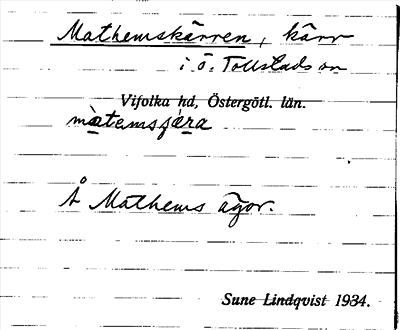 Mathemskärren, kärr
i Ö. Tollstads sn
Vifolka hd, Östergötl. län.
màtemsʃæ̀ra
Å Mathems ägor.
Sune Lindqvist 1934.